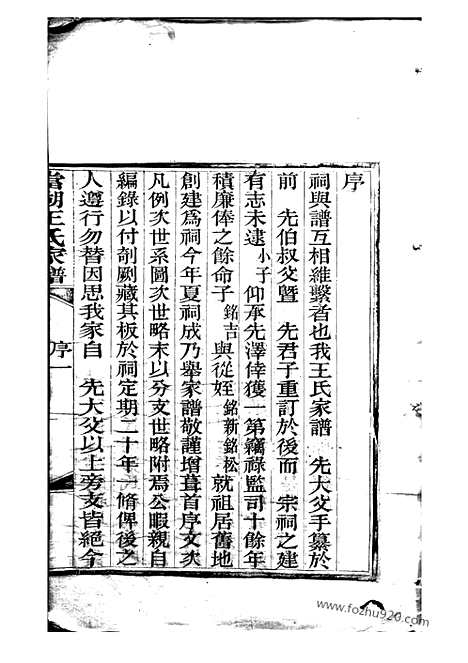 序
祠與譜互相維繫者也我王氏家譜 先大父手纂於
前 先伯叔父暨 先君子重訂於後而 宗祠之建
有志未逮小子仰承先澤倖獲一第竊祿監司十餘年
積廉俸之餘命子銘吉與從姪銘新銘松就祖居舊地
創建為祠今年夏祠成乃舉家譜敬謹增葺首序文次
凡例次世系圖次世略末以分支世略附焉公暇親自
編錄以付剞劂藏其板於祠定期二十年一脩俾後之
人遵行勿替因思我家自 先大父以上旁支皆絕今
當湖王氏家譜 序 一
www.fozhu920.com